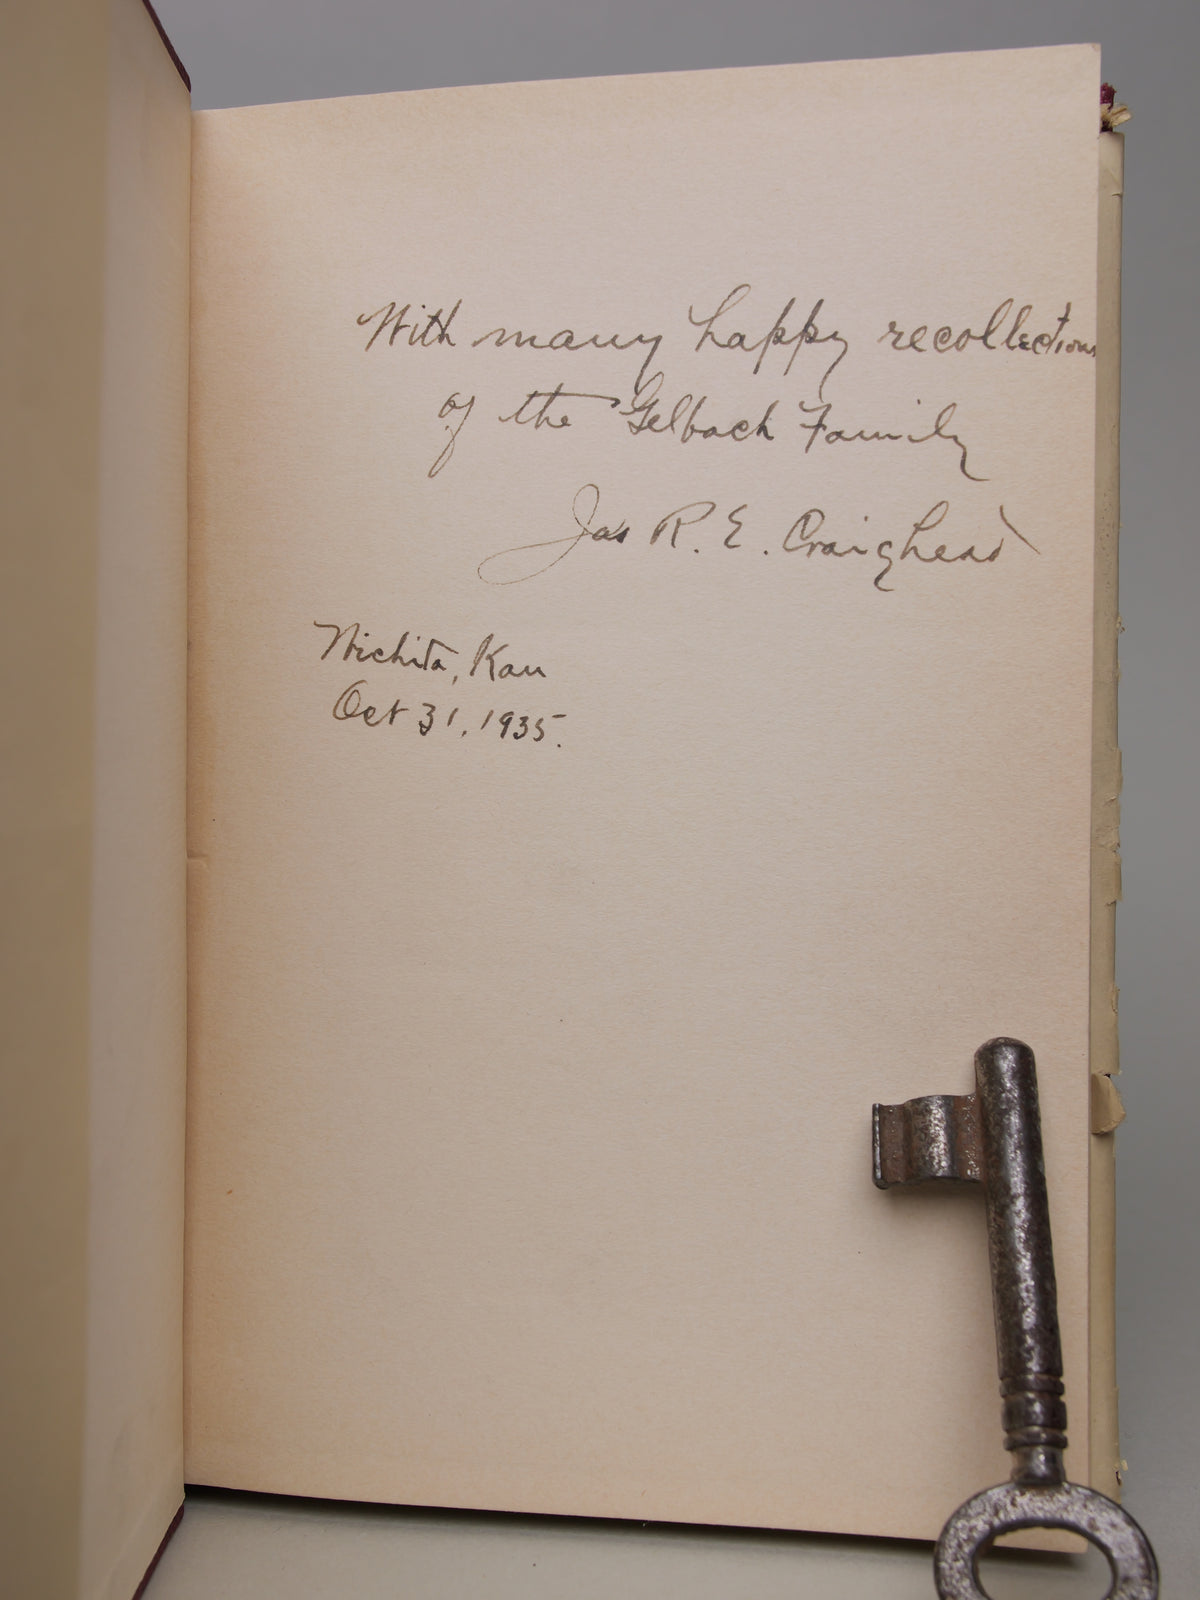 With many happy recollections
of the Gelbach Family
Jas R. E. Craighead
Wichita, Kan
Oct 31, 1935.